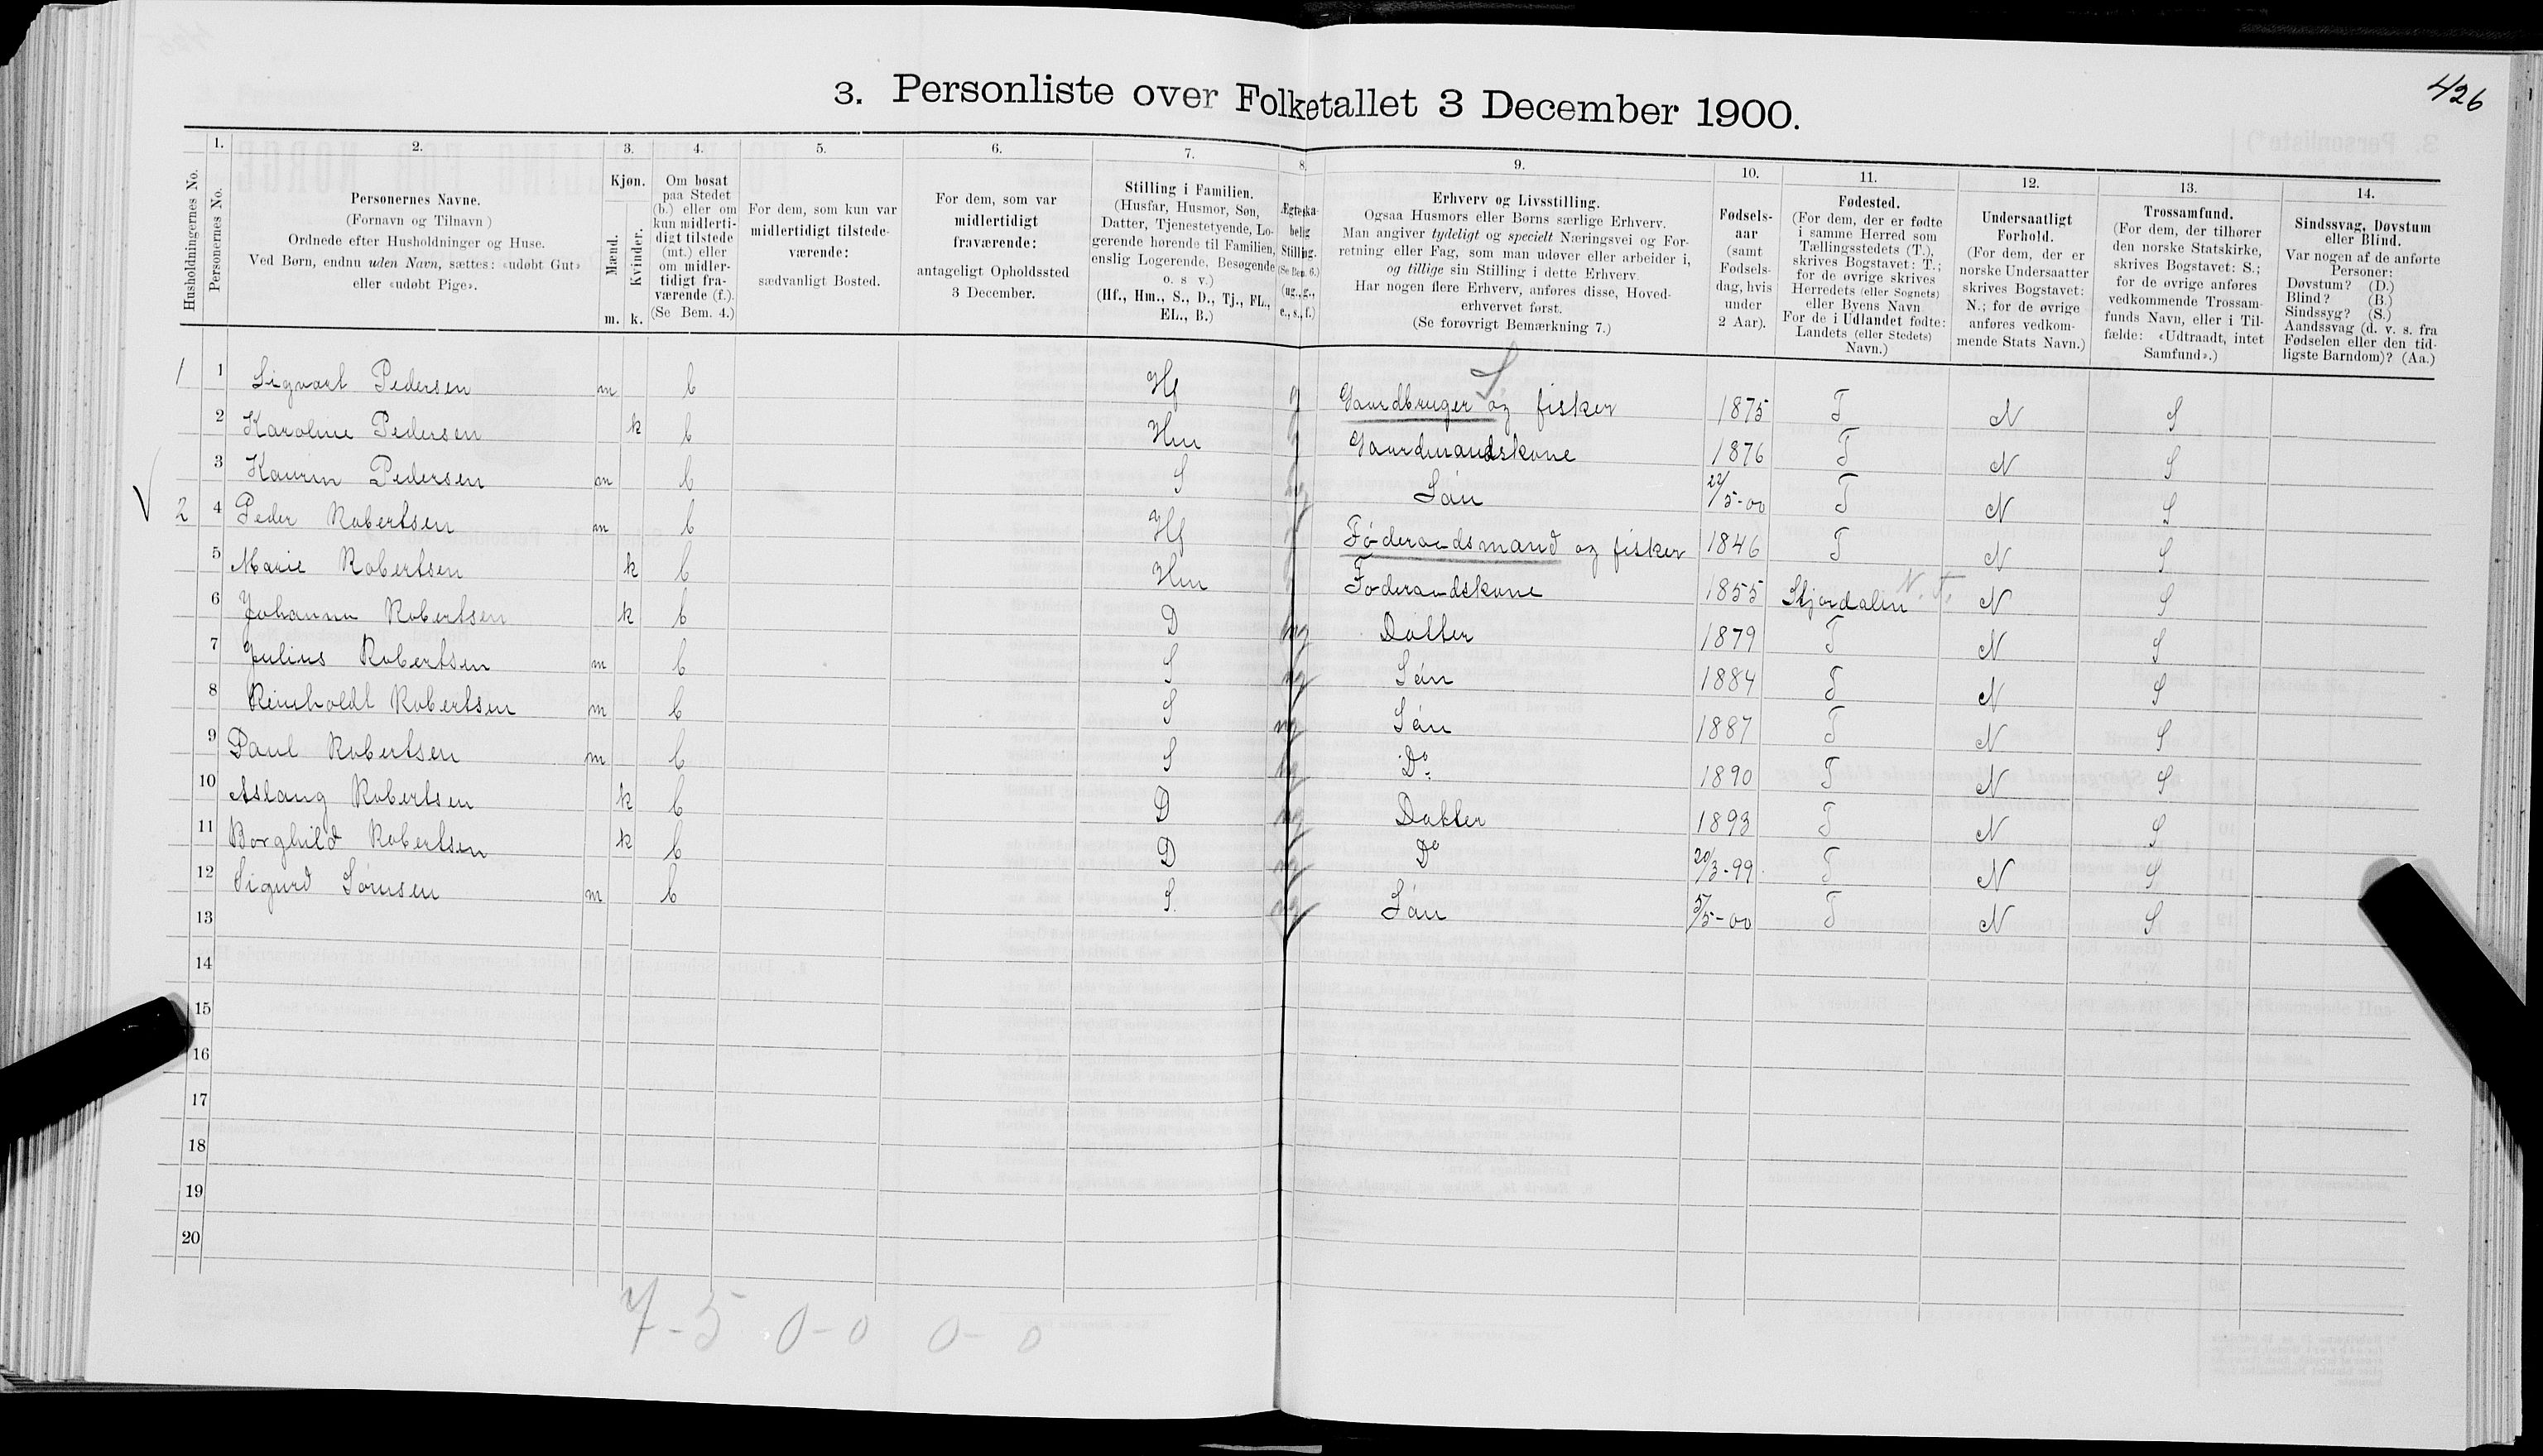 426
3. Personliste over Folketallet 3 December 1900.
1. 2. 3. 4. 5. 6. 7. 8. 9. 10. 11. 12. 13. 14.
Husholdningernes No.
Personernes No.
Personernes Navne.
(Fornavn og Tilnavn)
Ordnede efter Husholdninger og Huse.
Ved Børn, endnu uden Navn, sættes: «udøbt Gut»
eller «udøbt Pige».
Kjøn.
Mænd.
Kvinder.
m. k.
Om bosat
paa Stedet
(b.) eller om
kun midlerti-
digt tilstede
(mt.) eller
om midler-
tidigt fra-
værende (f.).
(Se Bem. 4.)
For dem, som kun var
midlertidigt tilstede-
værende:
sædvanligt Bosted.
For dem, som var
midlertidigt
fraværende:
antageligt Opholdssted
3 December.
Stilling i Familien.
(Husfar, Husmor, Søn,
Datter, Tjenestetyende, Lo-
gerende hørende til Familien,
enslig Logerende, Besøgende
o. s v.)
(Hf., Hm., S., D., Tj., FL.,
EL., B.)
Ægteska-
belig
Stilling.
(Se Bem. 6.)
(ug., g.,
e., s., f.)
Erhverv og Livsstilling.
Ogsaa Husmors eller Børns særlige Erhverv.
Man angiver tydeligt og specielt Næringsvei og For-
retning eller Fag, som man udøver eller arbeider i,
og tillige sin Stilling i dette Erhverv.
Har nogen flere Erhverv, anføres disse, Hoved-
erhvervet først.
(Se forøvrigt Bemærkning 7.)
Fødsels-
aar
(samt
Fødsels-
dag, hvis
under
2 Aar).
Fødested.
(For dem, der er fødte
i samme Herred som
Tællingsstedets (T.),
skrives Bogstavet: T.;
for de øvrige skrives
Herredets (eller Sognets)
eller Byens Navn
For de i Udlandet fødte:
Landets (eller Stedets)
Navn.)
Undersaatligt
Forhold.
(For dem, der er
norske Undersaatter
skrives Bogstavet:
N.; for de øvrige
anføres vedkom-
mende Stats Navn.)
Trossamfund.
(For dem, der tilhører
den norske Statskirke,
skrives Bogstavet: S.;
for de øvrige anføres
vedkommende Trossam-
funds Navn, eller i Til-
fælde: «Udtraadt, intet
Samfund».)
Sindssvag, Døvstum
eller Blind.
Var nogen af de anførte
Personer:
Døvstum? (D.)
Blind? (B.)
Sindssyg? (S.)
Aandssvag (d. v. s. fra
Fødselen eller den tid-
ligste Barndom)? (Aa.)
S
1 1 Sigvart Pedersen m b Hf g Gaardbruger og fisker 1875 T N S
2 Karoline Pedersen k b Hm g Gaardmandskone 1876 T N S
3 Kaurin Pedersen m b S ug Søn 22/5-00 T N S
2 4 Peder Robertsen m b Hf g Føderaadsmand og fisker 1846 T N S
5 Marie Robertsen k b Hm g Føderaadskone 1855 Stjørdalen N. T. N S
6 Johanna Robertsen k b D ug Datter 1879 T N S
7 Julius Robertsen m b S ug Søn 1884 T N S
8 Reinholdt Robertsen m b S ug Søn 1887 T N S
9 Paul Robertsen m b S ug Do 1890 T N S
10 Aslaug Robertsen k b D ug Datter 1893 T N S
11 Borghild Robertsen k b D ug Do 20/3-99 T N S
12 Sigurd Sørnsen m b S. ug Søn 5/5-00 T N S
13
14
15
16
17
18
19
20
7-5 0-0 0-0